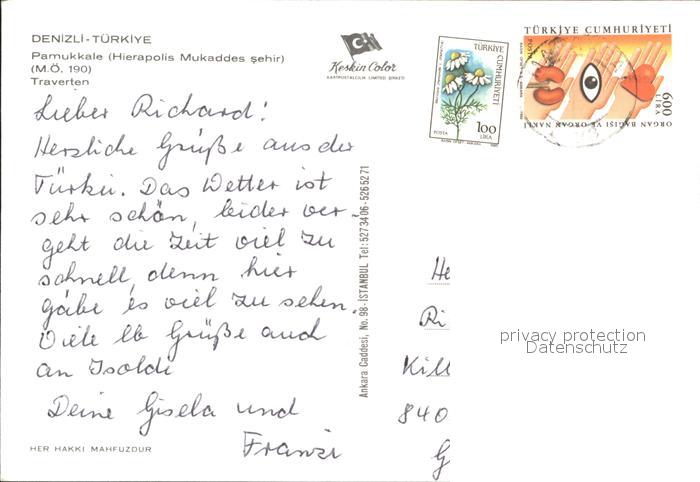 DENİZLİ-TÜRKİYE
Pamukkale (Hierapolis Mukaddes şehir)
(M.Ö. 190)
Traverten
Keskin Color
KARTPOSTALCILIK LİMİTED ŞİRKETİ
TÜRKİYE CUMHURİYETİ
POSTA
100
LİRA
TÜRKİYE CUMHURİYETİ
POSTA
600
LİRA
ORGAN BAĞIŞI VE ORGAN NAKLİ
Lieber Richard!
Herzliche Grüße aus der
Türkei. Das Wetter ist
sehr schön, leider ver-
geht die Zeit viel zu
schnell, denn hier
gäbe es viel zu sehen.
Viele lb Grüße auch
an Isolde
Deine Gisela und
Franzi
Ankara Caddesi, No. 98-İSTANBUL Tel: 527 34 06-526 52 71
He
Ri
Kill
840
G
privacy protection
Datenschutz
HER HAKKI MAHFUZDUR